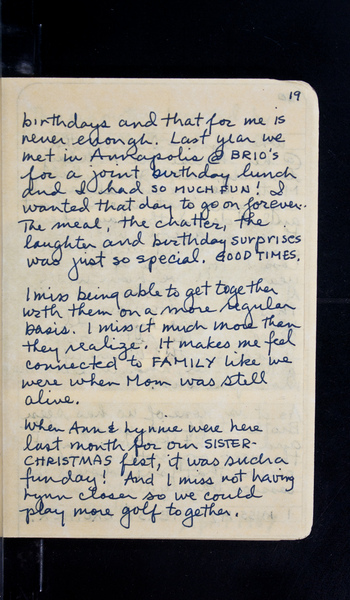 19
birthdays and that for me is
never enough. Last year we
met in Annapolis @ BRIO'S
for a joint birthday lunch
and I had SO MUCH FUN! I
wanted that day to go on forever.
The meal, the chatter, the
laughter and birthday surprises
was just so special. GOOD TIMES.
I miss being able to get together
with them on a more regular
basis. I miss it much more than
they realize. It makes me feel
connected to FAMILY like we
were when Mom was still
alive.
When Ann & Lynnie were here
last month for our SISTER-
CHRISTMAS fest, it was such a
fun day! And I miss not having
Lynn closer so we could
play more golf together.